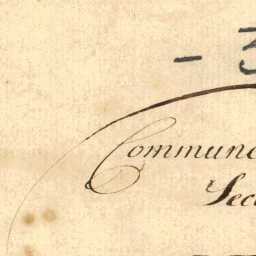 - 3
Commun
Sec